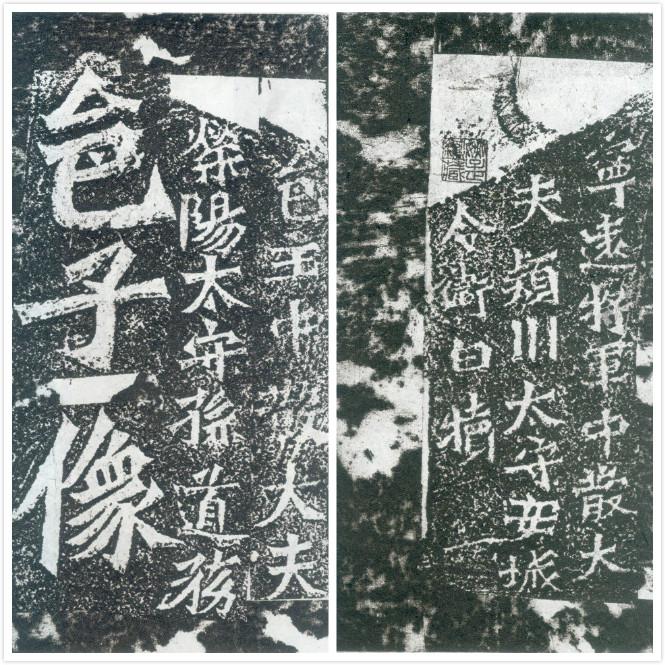 邑主中散大夫
滎陽太守孫道務
邑子像
寧遠將軍中散大
夫穎川太守安城
令衛白犢